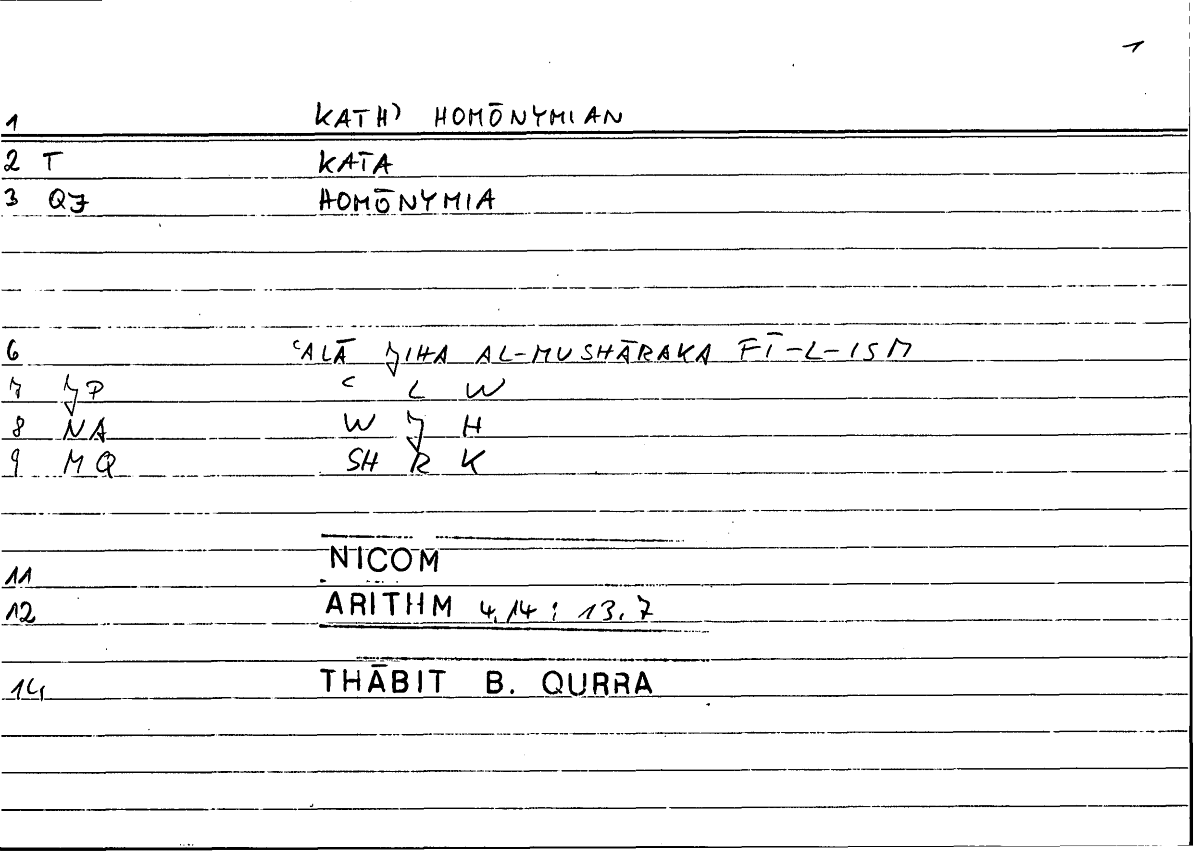 1
1 KATH' HOMŌNYMIAN
2 T KATA
3 QJ HOMŌNYMIA
6 ʿALĀ JIHA AL-MUSHĀRAKA FĪ-L-ISM
7 JP ʿ L W
8 NA W J H
9 MQ SH R K
11 NICOM
12 ARITHM 4,14 ; 13,7
14 THĀBIT B. QURRA